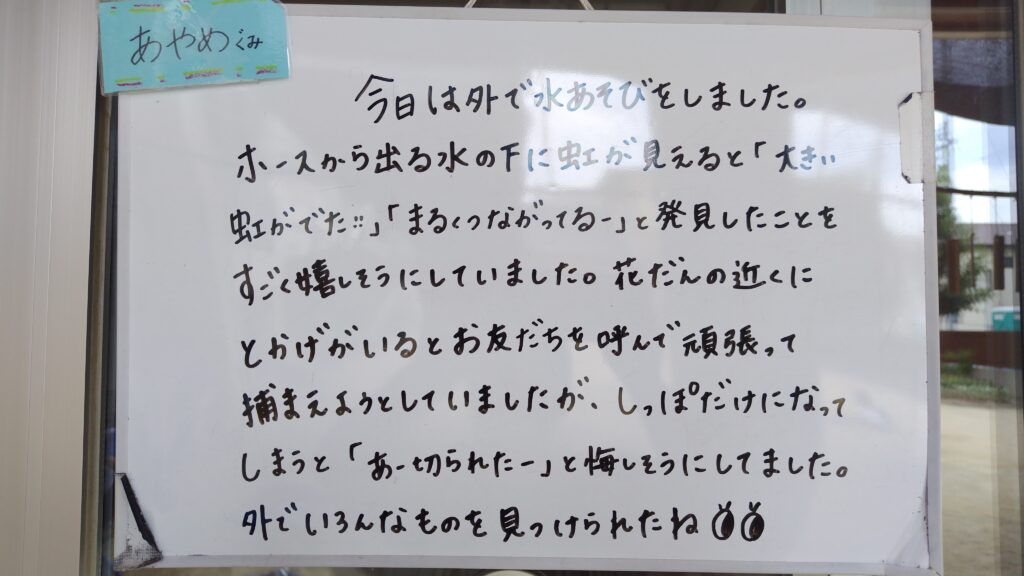 あやめぐみ
今日は外で水あそびをしました。
ホースから出る水の下に虹が見えると「大きい
虹がでた!!」「まるくつながってるー」と発見したことを
すごく嬉しそうにしていました。花だんの近くに
とかげがいるとお友だちを呼んで頑張って
捕まえようとしていましたが、しっぽだけになって
しまうと「あー切られたー」と悔しそうにしてました。
外でいろんなものを見つけられたね👀